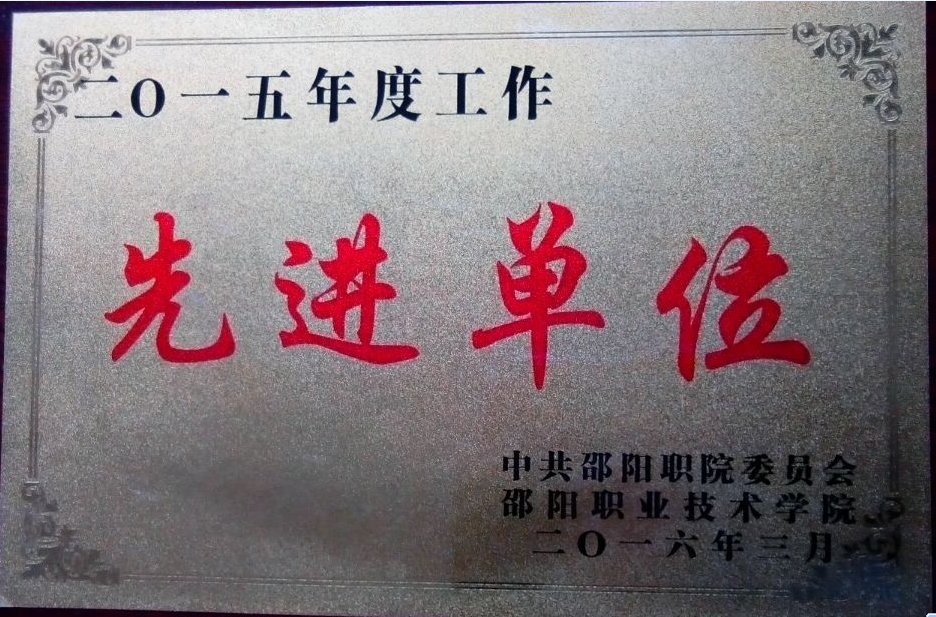 二〇一五年度工作
先进单位
中共邵阳职院委员会
邵阳职业技术学院
二〇一六年三月